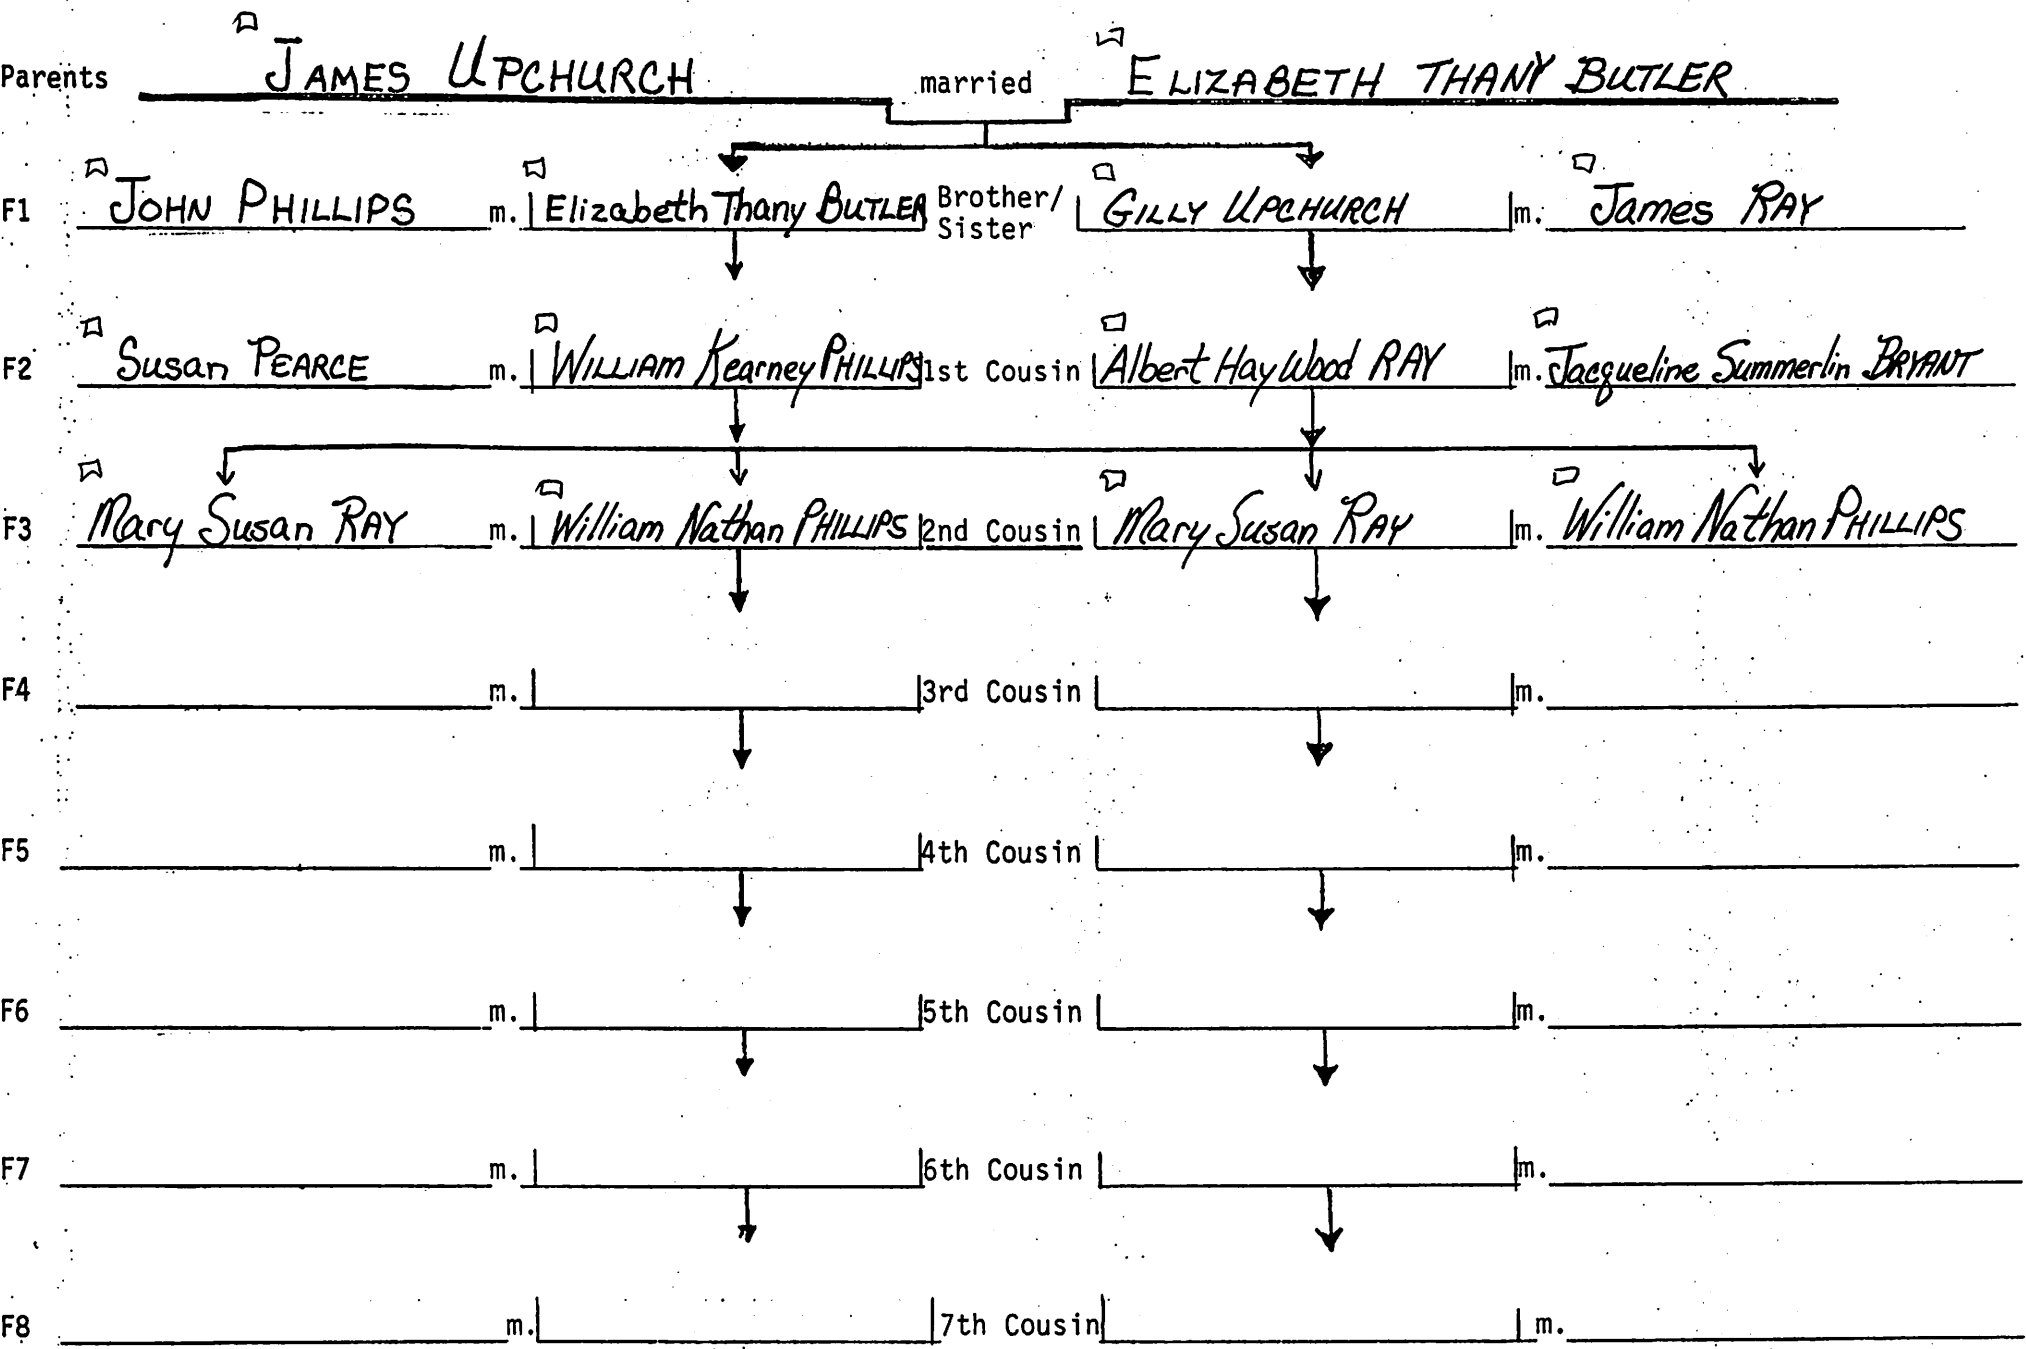 Parents JAMES UPCHURCH married ELIZABETH THANY BUTLER
F1 JOHN PHILLIPS m. Elizabeth Thany BUTLER Brother/ Sister GILLY UPCHURCH m. James RAY
F2 Susan PEARCE m. WILLIAM Kearney PHILLIPS 1st Cousin Albert HayWood RAY m. Jacqueline Summerlin BRYANT
F3 Mary Susan RAY m. William Nathan PHILLIPS 2nd Cousin Mary Susan RAY m. William Nathan PHILLIPS
F4 m. 3rd Cousin m.
F5 m. 4th Cousin m.
F6 m. 5th Cousin m.
F7 m. 6th Cousin m.
F8 m. 7th Cousin m.